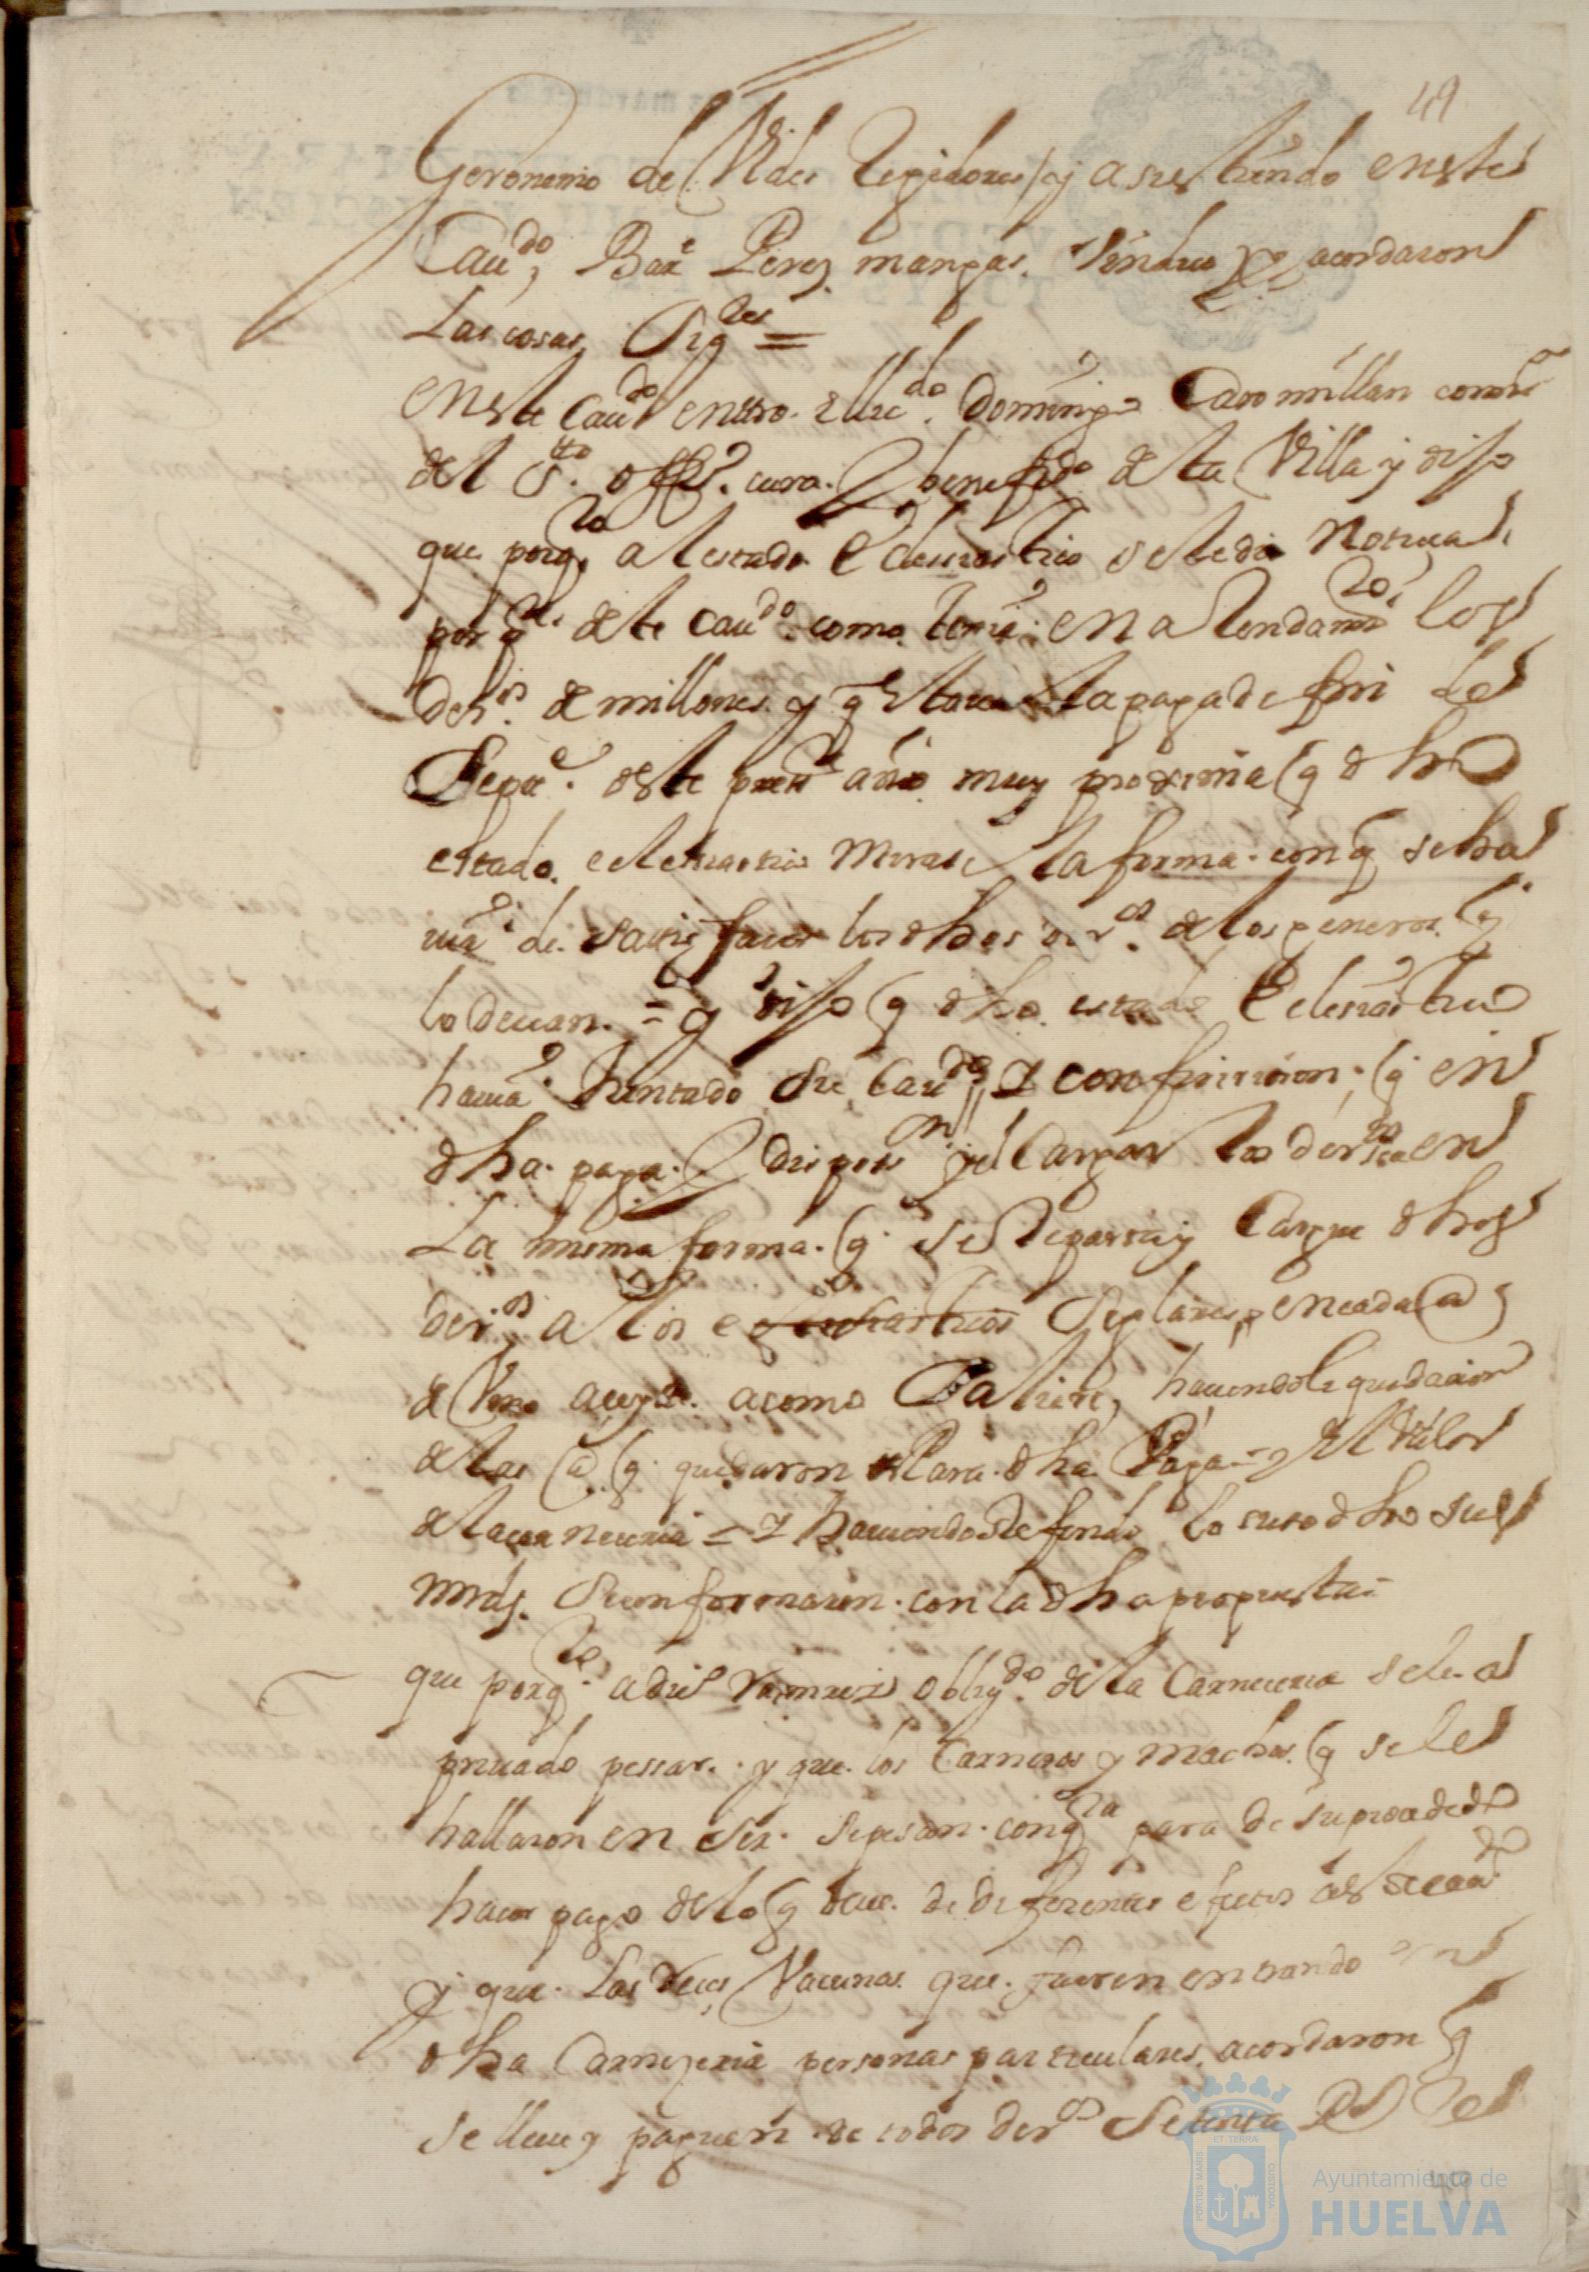 49
Geronimo de Vides Regidores y asistiendo eneste
Cavdo, Bare Perez mangas. sindico y acordaron
Las cosas Sigtes =
eneste Cavdo entro. el licdo. Domingo Caro millan comiso
del sto offo. cura. y benefdo desta Villa y dixo
que porqto al estado Eclesiastico se le dio Noticia
por pte deste cavdo. como tenia en arrendamto los
dros de millones y q estava la paga de fin de
Sepe. deste preste año muy proxima q dho
estado eclesiastico mirase la forma. con q se ha
via de satisfacer los dhos drs. de los generos q
lo devian. = y dixo q dho estado Eclesiastico
havia Juntado su Cavdo, y confirieron; q en
dha. paga. y dispon cargar los deros en
La misma forma. q se Reparta y Cargue dhos
deros a los seglares, en cada @
de Vino aceyte. a como Saliere, haciendole quedacion
de las @ q quedaron Para dha Paga = y el Valor
de la carneceria = y haviendose entendido lo suso dho sus
mrds. Se conformaron. con la dha propuesta =
que porqto adres Ramirez obligdo. de la Carneceria se le a
privado pessar. y que. los Carneros y machos. q se le
hallaron en ser. se pesan. con qta para de su procedido
hacer pago de lo q deve. de diferentes efectos a este cavdo
y que. Las reces Vacunas. que. fueren entrando en
dha Carnizeria personas particulares. acordaron q
se lleve y paguen de todos deros Setenta Rs De
Ayuntamiento de
HUELVA